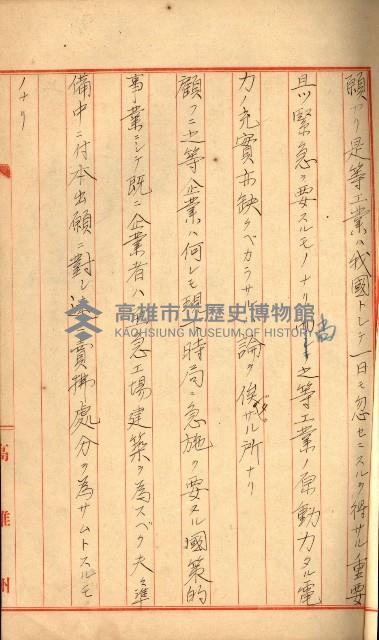 願ヒリ是等工業ハ我國トシテ一日モ忽セニスルヲ得サル重要
且ツ緊急ヲ要スルモノナリ尚之等工業ノ原動力タル電
力ノ充實亦缺クベカラサル論ヲ俟タザル所ナリ
顧フニ之等企業ハ何レモ現時局ニ急施ヲ要スル國策的
事業ニシテ既ニ企業者ハ急工場建築ヲ為スベク夫々準
備中ニ付本出願ニ對シ賣拂處分ヲ為サムトスルモ
ノナリ
高雄州
高雄市立歷史博物館
KAOHSIUNG MUSEUM OF HISTORY